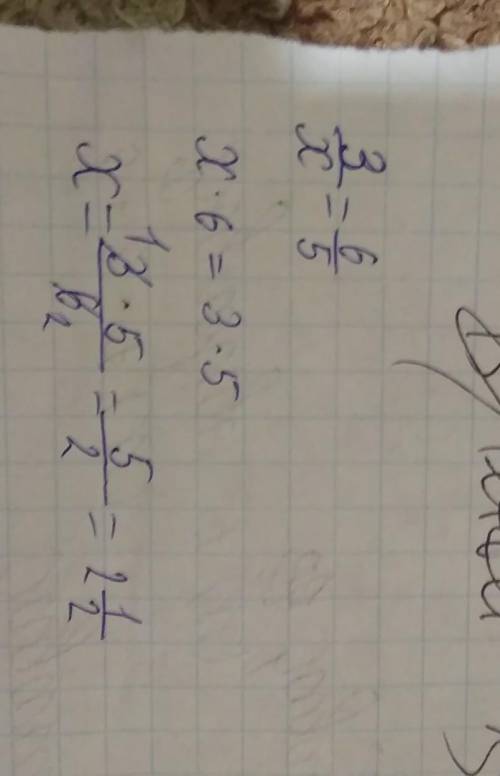 3/x = 6/5
x · 6 = 3 · 5
x = 3 · 5 / 6 = 5/2 = 2 1/2